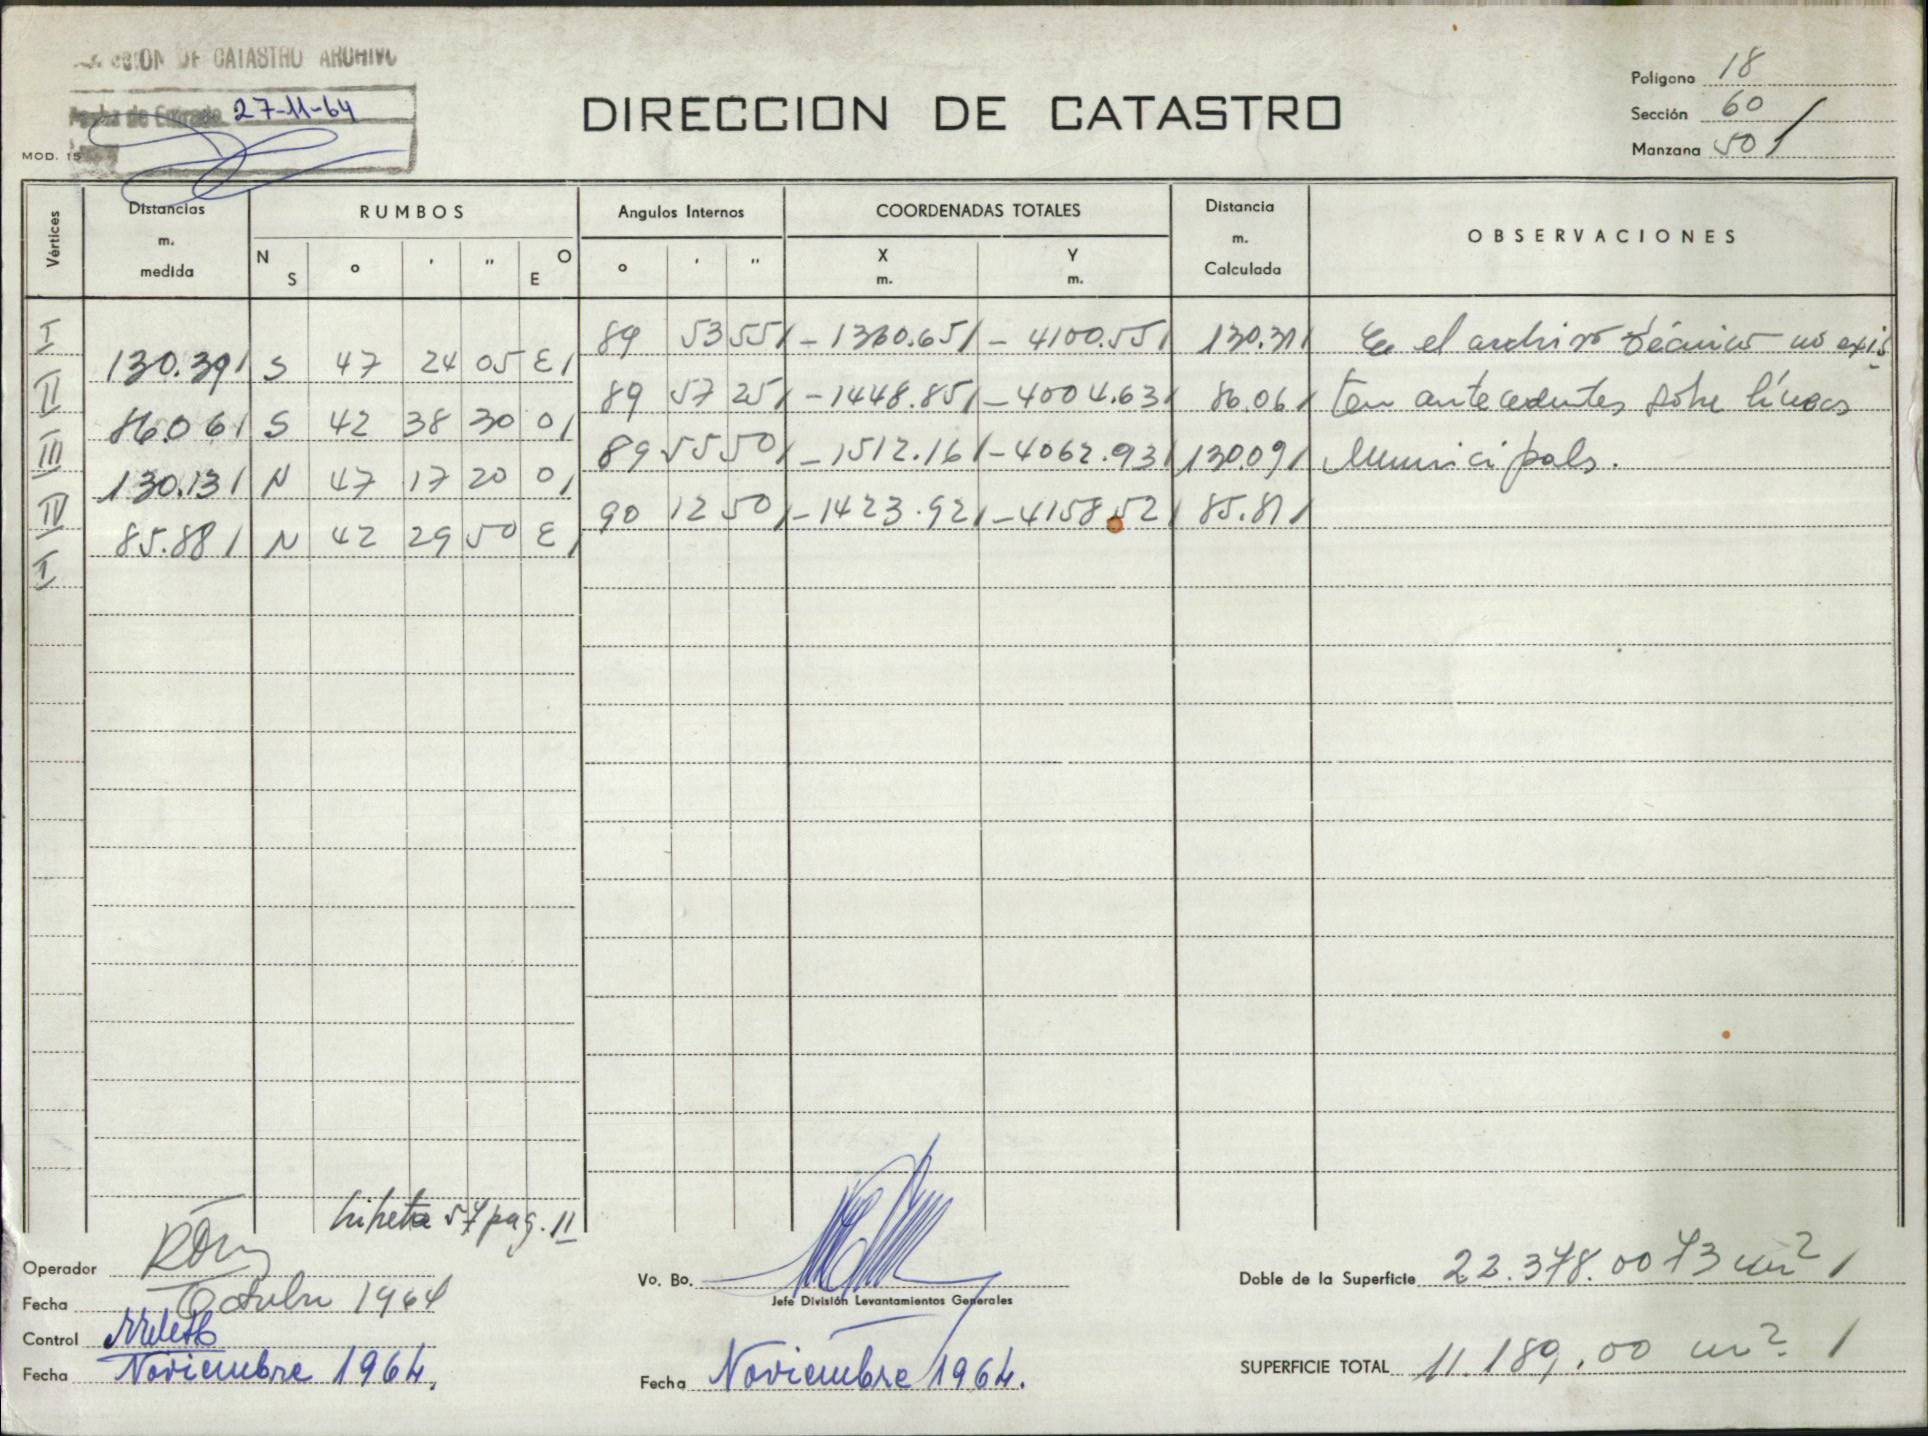 CCION DE CATASTRO ARCHIVO
Fecha de Entrada 27-11-64
MOD. 15
DIRECCION DE CATASTRO
Polígono 18
Sección 60
Manzana 50 /
Vértices Distancias m. medida RUMBOS N S ° ' " O E Angulos Internos ° ' " COORDENADAS TOTALES X m. Y m. Distancia m. Calculada OBSERVACIONES
I 89 53 55/ -1360.65/ -4100.55/ 130.31/ En el archivo técnico no exis
130.39/ S 47 24 05 E/
II 89 57 25/ -1448.85/ -4004.63/ 86.06/ ten antecedentes sobre líneas
86.06/ S 42 38 30 O/
III 89 55 50/ -1512.16/ -4062.93/ 130.09/ Municipales.
130.13/ N 47 17 20 O/
IV 90 12 50/ -1423.92/ -4158.52/ 85.81/
85.88/ N 42 29 50 E/
I
Libreta 57 pag. 11
Operador
Fecha Octubre 1964
Control
Fecha Noviembre 1964.
Vo. Bo.
Jefe División Levantamientos Generales
Fecha Noviembre 1964.
Doble de la Superficie 22.378.0073 m² /
SUPERFICIE TOTAL 11.189,00 m² /